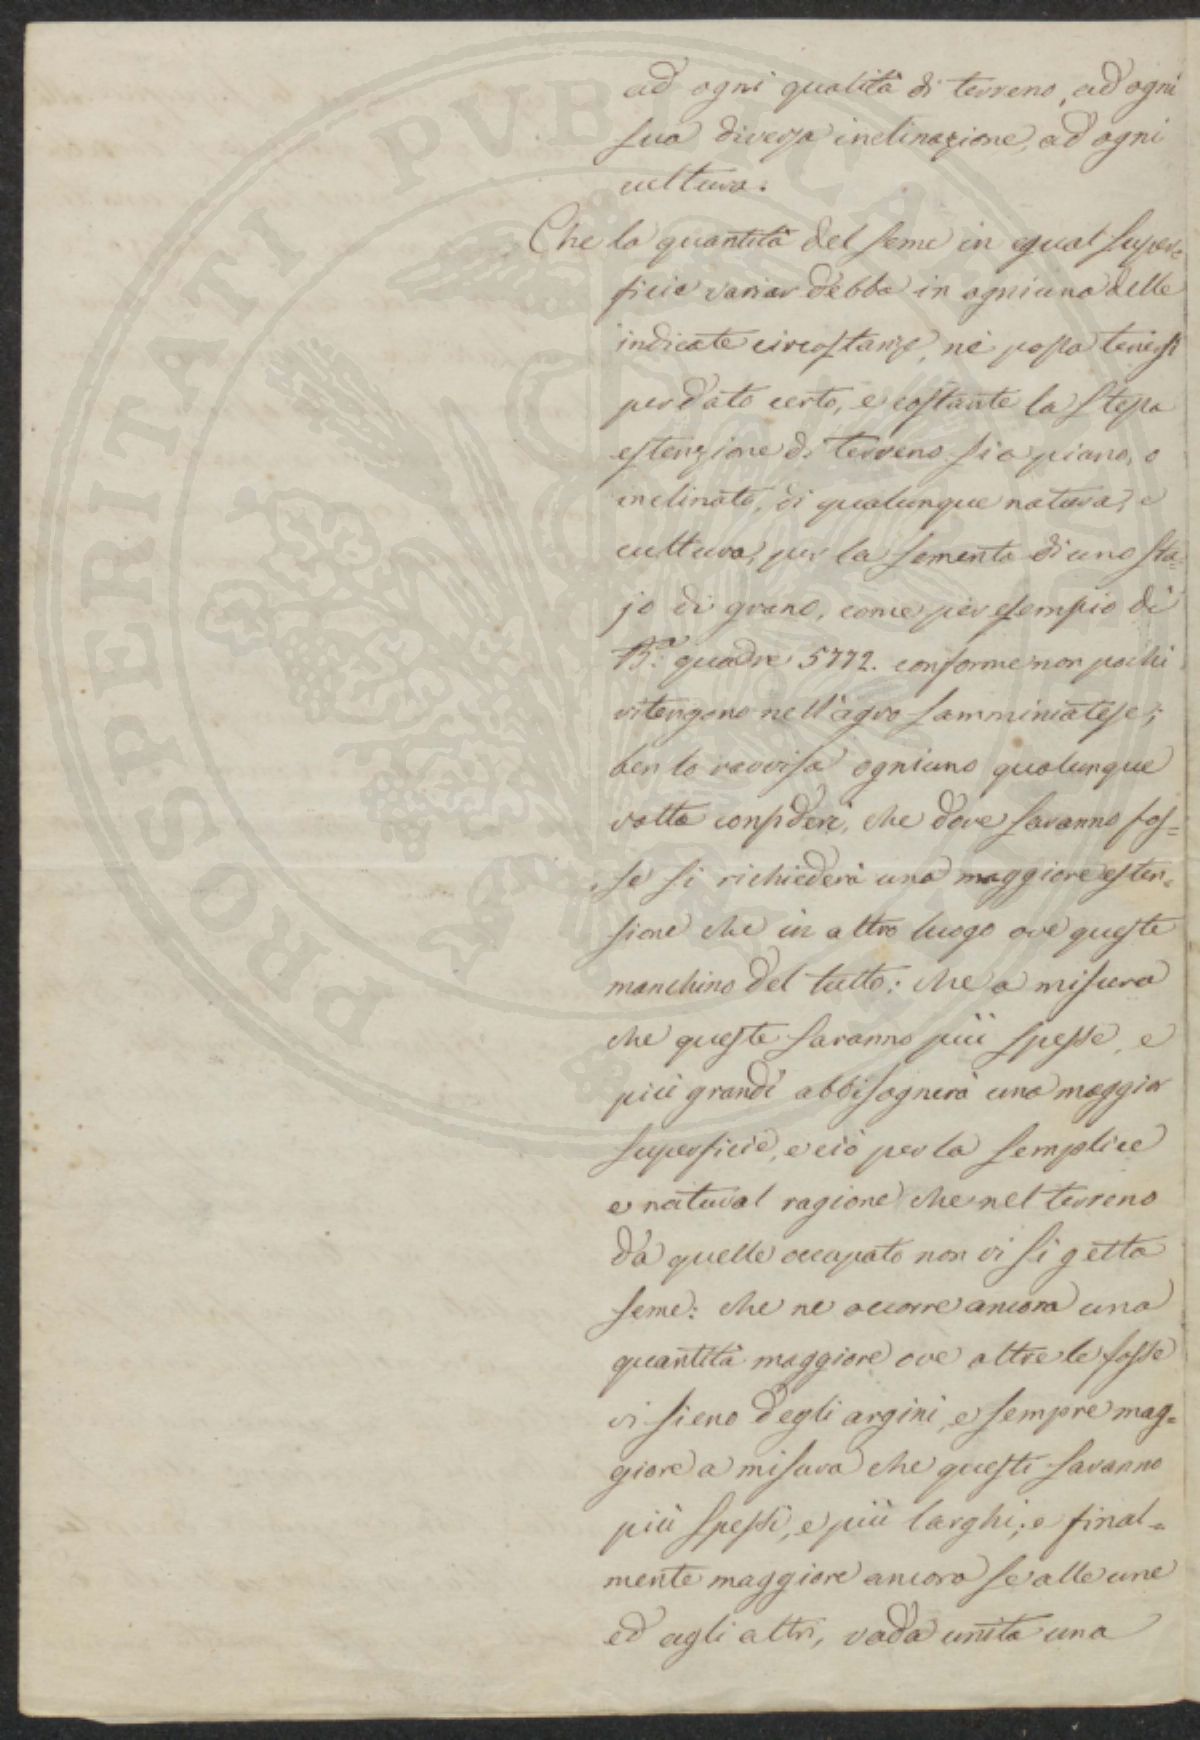 ad ogni qualità di terreno, ad ogni
sua diversa inclinazione, ad ogni
cultura.
Che la quantità del seme in egual super=
ficie variar debba in ogniuna delle
indicate circostanze, nè possa tenersi
per dato certo, e costante la stessa
estenzione di terreno sia piano, o
inclinato, di qualunque natura, e
cultura, per la sementa di uno sta=
jo di grano, come per esempio di
B.ª quadre 5772. conforme non pochi
ritengono nell'agro samminiatese;
ben lo ravvisa ogniuno qualunque
volta consideri, che dove saranno fos=
se si richiederà una maggiore esten=
sione che in altro luogo ove queste
manchino del tutto: che a misura
che queste saranno più spesse, e
più grandi abbisognerà una maggior
superficie, e ciò per la semplice
e natural ragione che nel terreno
da quelle occupato non vi si getta
seme: che ne occorre ancora una
quantità maggiore ove oltre le fosse
vi sieno degli argini, e sempre mag=
giore a misura che questi saranno
più spessi, e più larghi; e final=
mente maggiore ancora se alle une
ed agli altri, vada unita una
PROSPERITATI PVBLICAE